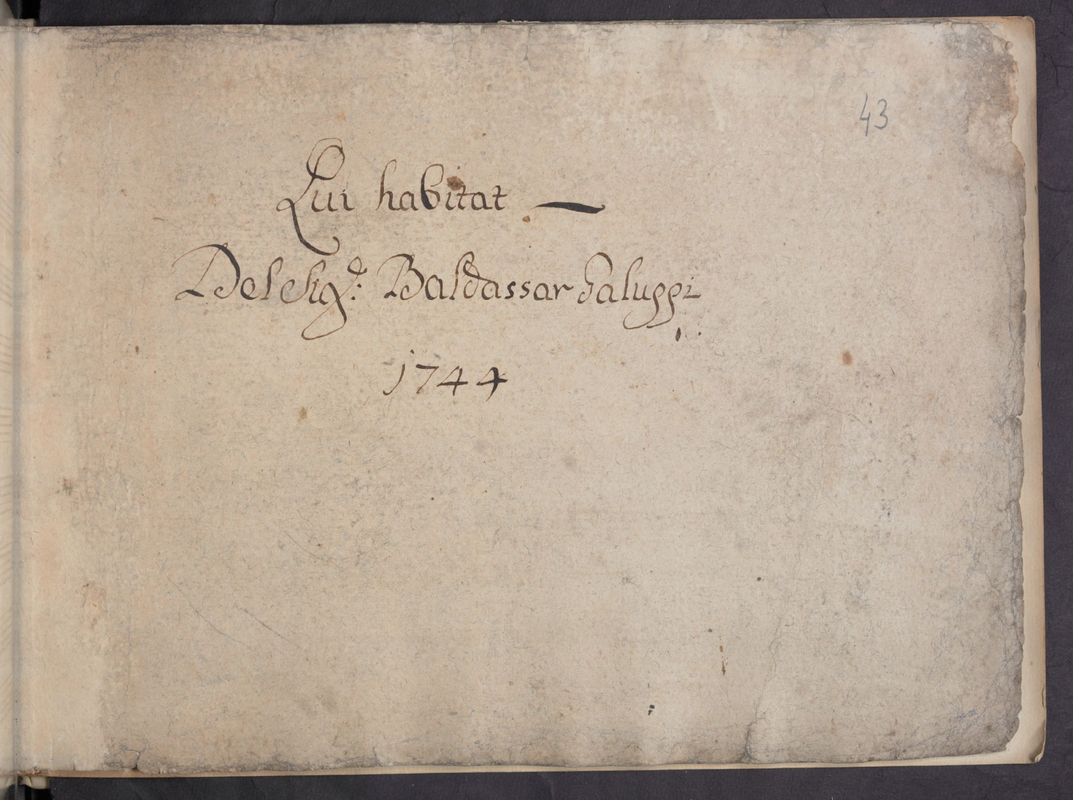 43
Qui habitat —
Del Sig.r: Baldassar Galuppi
1744